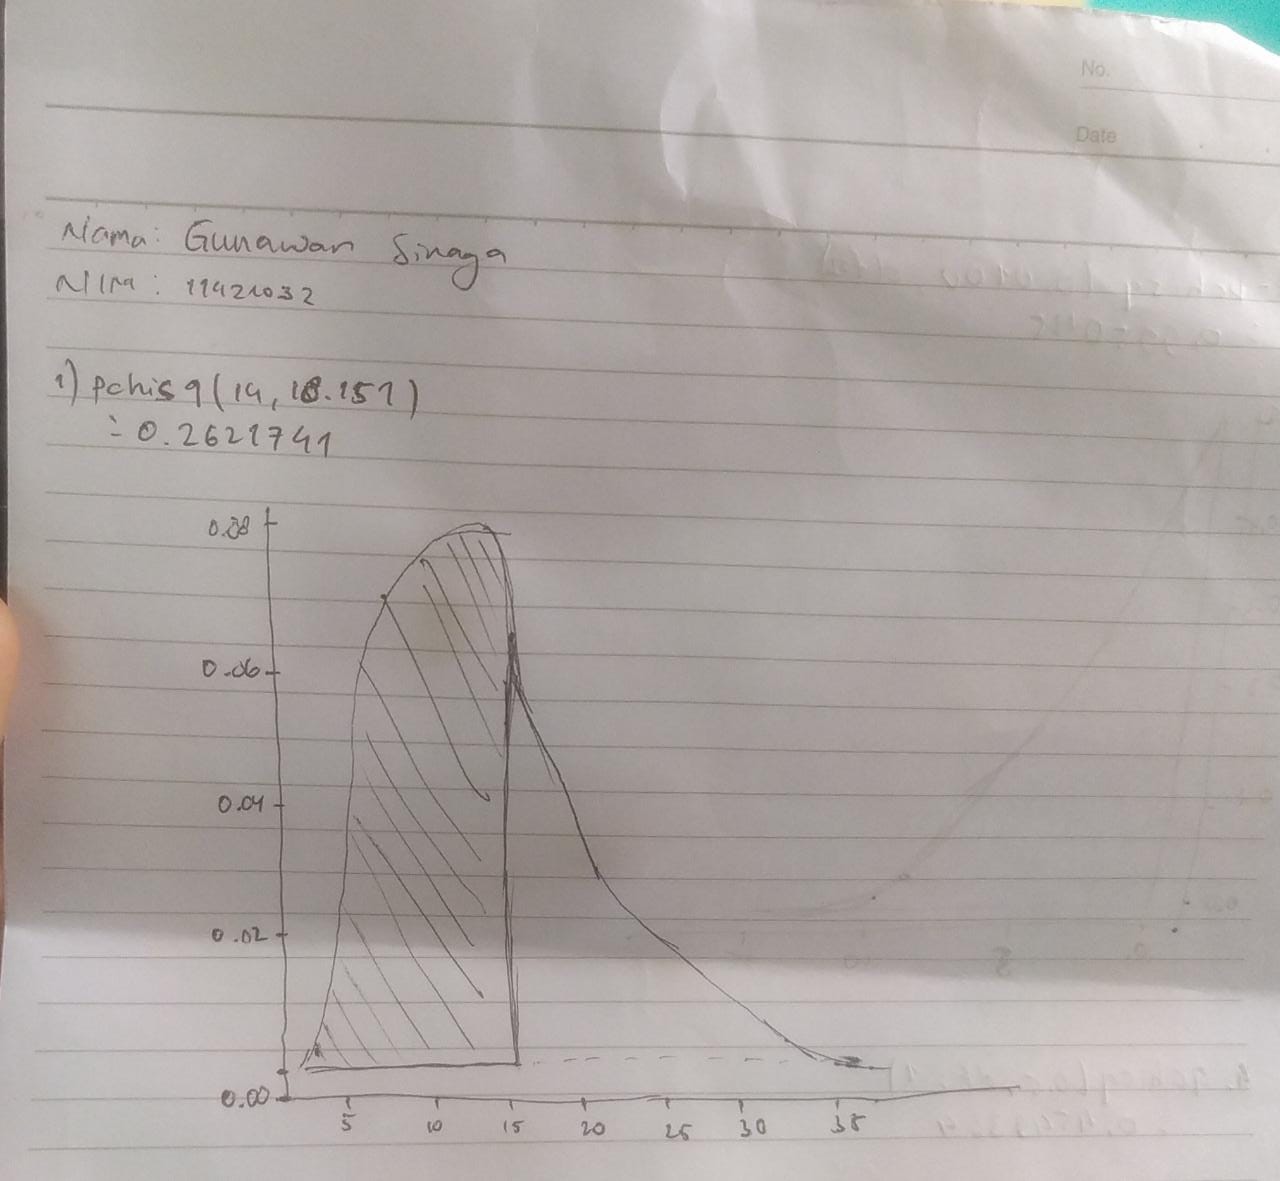 No.
Date
Nama: Gunawan Sinaga
NIM : 11421032
1) pchisq(14, 18.151)
= 0.2621741
0.08
0.06
0.04
0.02
0.00
5 10 15 20 25 30 35